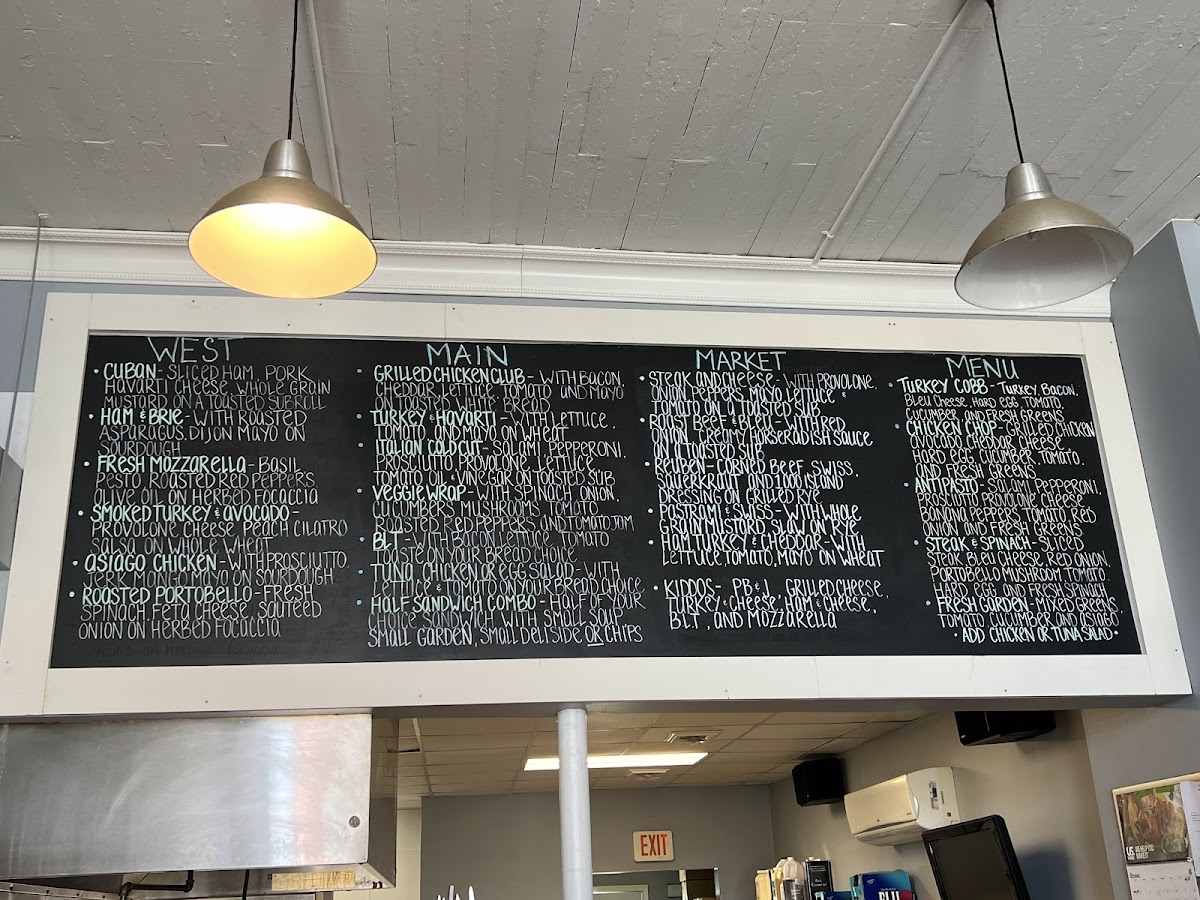 WEST
• CUBAN - SLICED HAM, PORK,
HAVARTI CHEESE, WHOLE GRAIN
MUSTARD ON A TOASTED SUB ROLL
• HAM & BRIE - WITH ROASTED
ASPARAGUS, DIJON MAYO ON
SOURDOUGH
• FRESH MOZZARELLA - BASIL
PESTO, ROASTED RED PEPPERS
OLIVE OIL ON HERBED FOCACCIA
• SMOKED TURKEY & AVOCADO -
PROVOLONE CHEESE, PEACH CILATRO
SALSA ON WHOLE WHEAT
• ASIAGO CHICKEN - WITH PROSCIUTTO,
JERK MANGO MAYO ON SOURDOUGH
• ROASTED PORTOBELLO - FRESH
SPINACH, FETA CHEESE, SAUTEED
ONION ON HERBED FOCACCIA
MAIN
• GRILLED CHICKEN CLUB - WITH BACON,
CHEDDAR, LETTUCE, TOMATO AND MAYO
ON TOASTED WHITE BREAD
• TURKEY & HAVARTI - WITH LETTUCE,
TOMATO AND MAYO ON WHEAT
• ITALIAN COLD CUT - SALAMI, PEPPERONI,
PROSCIUTTO, PROVOLONE, LETTUCE
TOMATO OIL & VINEGAR ON TOASTED SUB
• VEGGIE WRAP - WITH SPINACH, ONION,
CUCUMBERS, MUSHROOMS, TOMATO
ROASTED RED PEPPERS AND TOMATO JAM
• BLT - WITH BACON, LETTUCE, TOMATO
TOASTE ON YOUR BREAD CHOICE
• TUNA, CHICKEN OR EGG SALAD - WITH
LETTUCE & TOMATO ON YOUR BREAD CHOICE
• HALF SANDWICH COMBO - HALF OF YOUR
CHOICE SANDWICH WITH SMALL SOUP,
SMALL GARDEN, SMALL DELI SIDE, OR CHIPS
MARKET
• STEAK AND CHEESE - WITH PROVOLONE,
ONION, PEPPERS, MAYO, LETTUCE &
TOMATO ON A TOASTED SUB
• ROAST BEEF & BLEU - WITH RED
ONION, CREAMY HORSERADISH SAUCE
ON A TOASTED SUB
• REUBEN - CORNED BEEF, SWISS,
SAUERKRAUT AND 1000 ISLAND
DRESSING ON GRILLED RYE
• PASTRAMI & SWISS - WITH WHOLE
GRAIN MUSTARD, SLAW ON RYE
• HAM, TURKEY & CHEDDAR - WITH
LETTUCE, TOMATO, MAYO ON WHEAT
• KIDDOS - PB & J, GRILLED CHEESE,
TURKEY & CHEESE, HAM & CHEESE,
BLT, AND MOZZARELLA
MENU
• TURKEY COBB - TURKEY, BACON,
BLEU CHEESE, HARD EGG, TOMATO,
CUCUMBER, AND FRESH GREENS
• CHICKEN CHOP - GRILLED CHICKEN
AVOCADO, CHEDDAR CHEESE
HARD EGG, CUCUMBER, TOMATO,
AND FRESH GREENS
• ANTIPASTO - SALAMI, PEPPERONI,
PROSCIUTTO, PROVOLONE CHEESE
BANANA PEPPERS, TOMATO, RED
ONION AND FRESH GREENS
• STEAK & SPINACH - SLICED
STEAK, BLEU CHEESE, RED ONION,
PORTOBELLO MUSHROOM, TOMATO,
HARD EGG, AND FRESH SPINACH
• FRESH GARDEN - MIXED GREENS,
TOMATO, CUCUMBER AND ASIAGO
• ADD CHICKEN OR TUNA SALAD •
EXIT